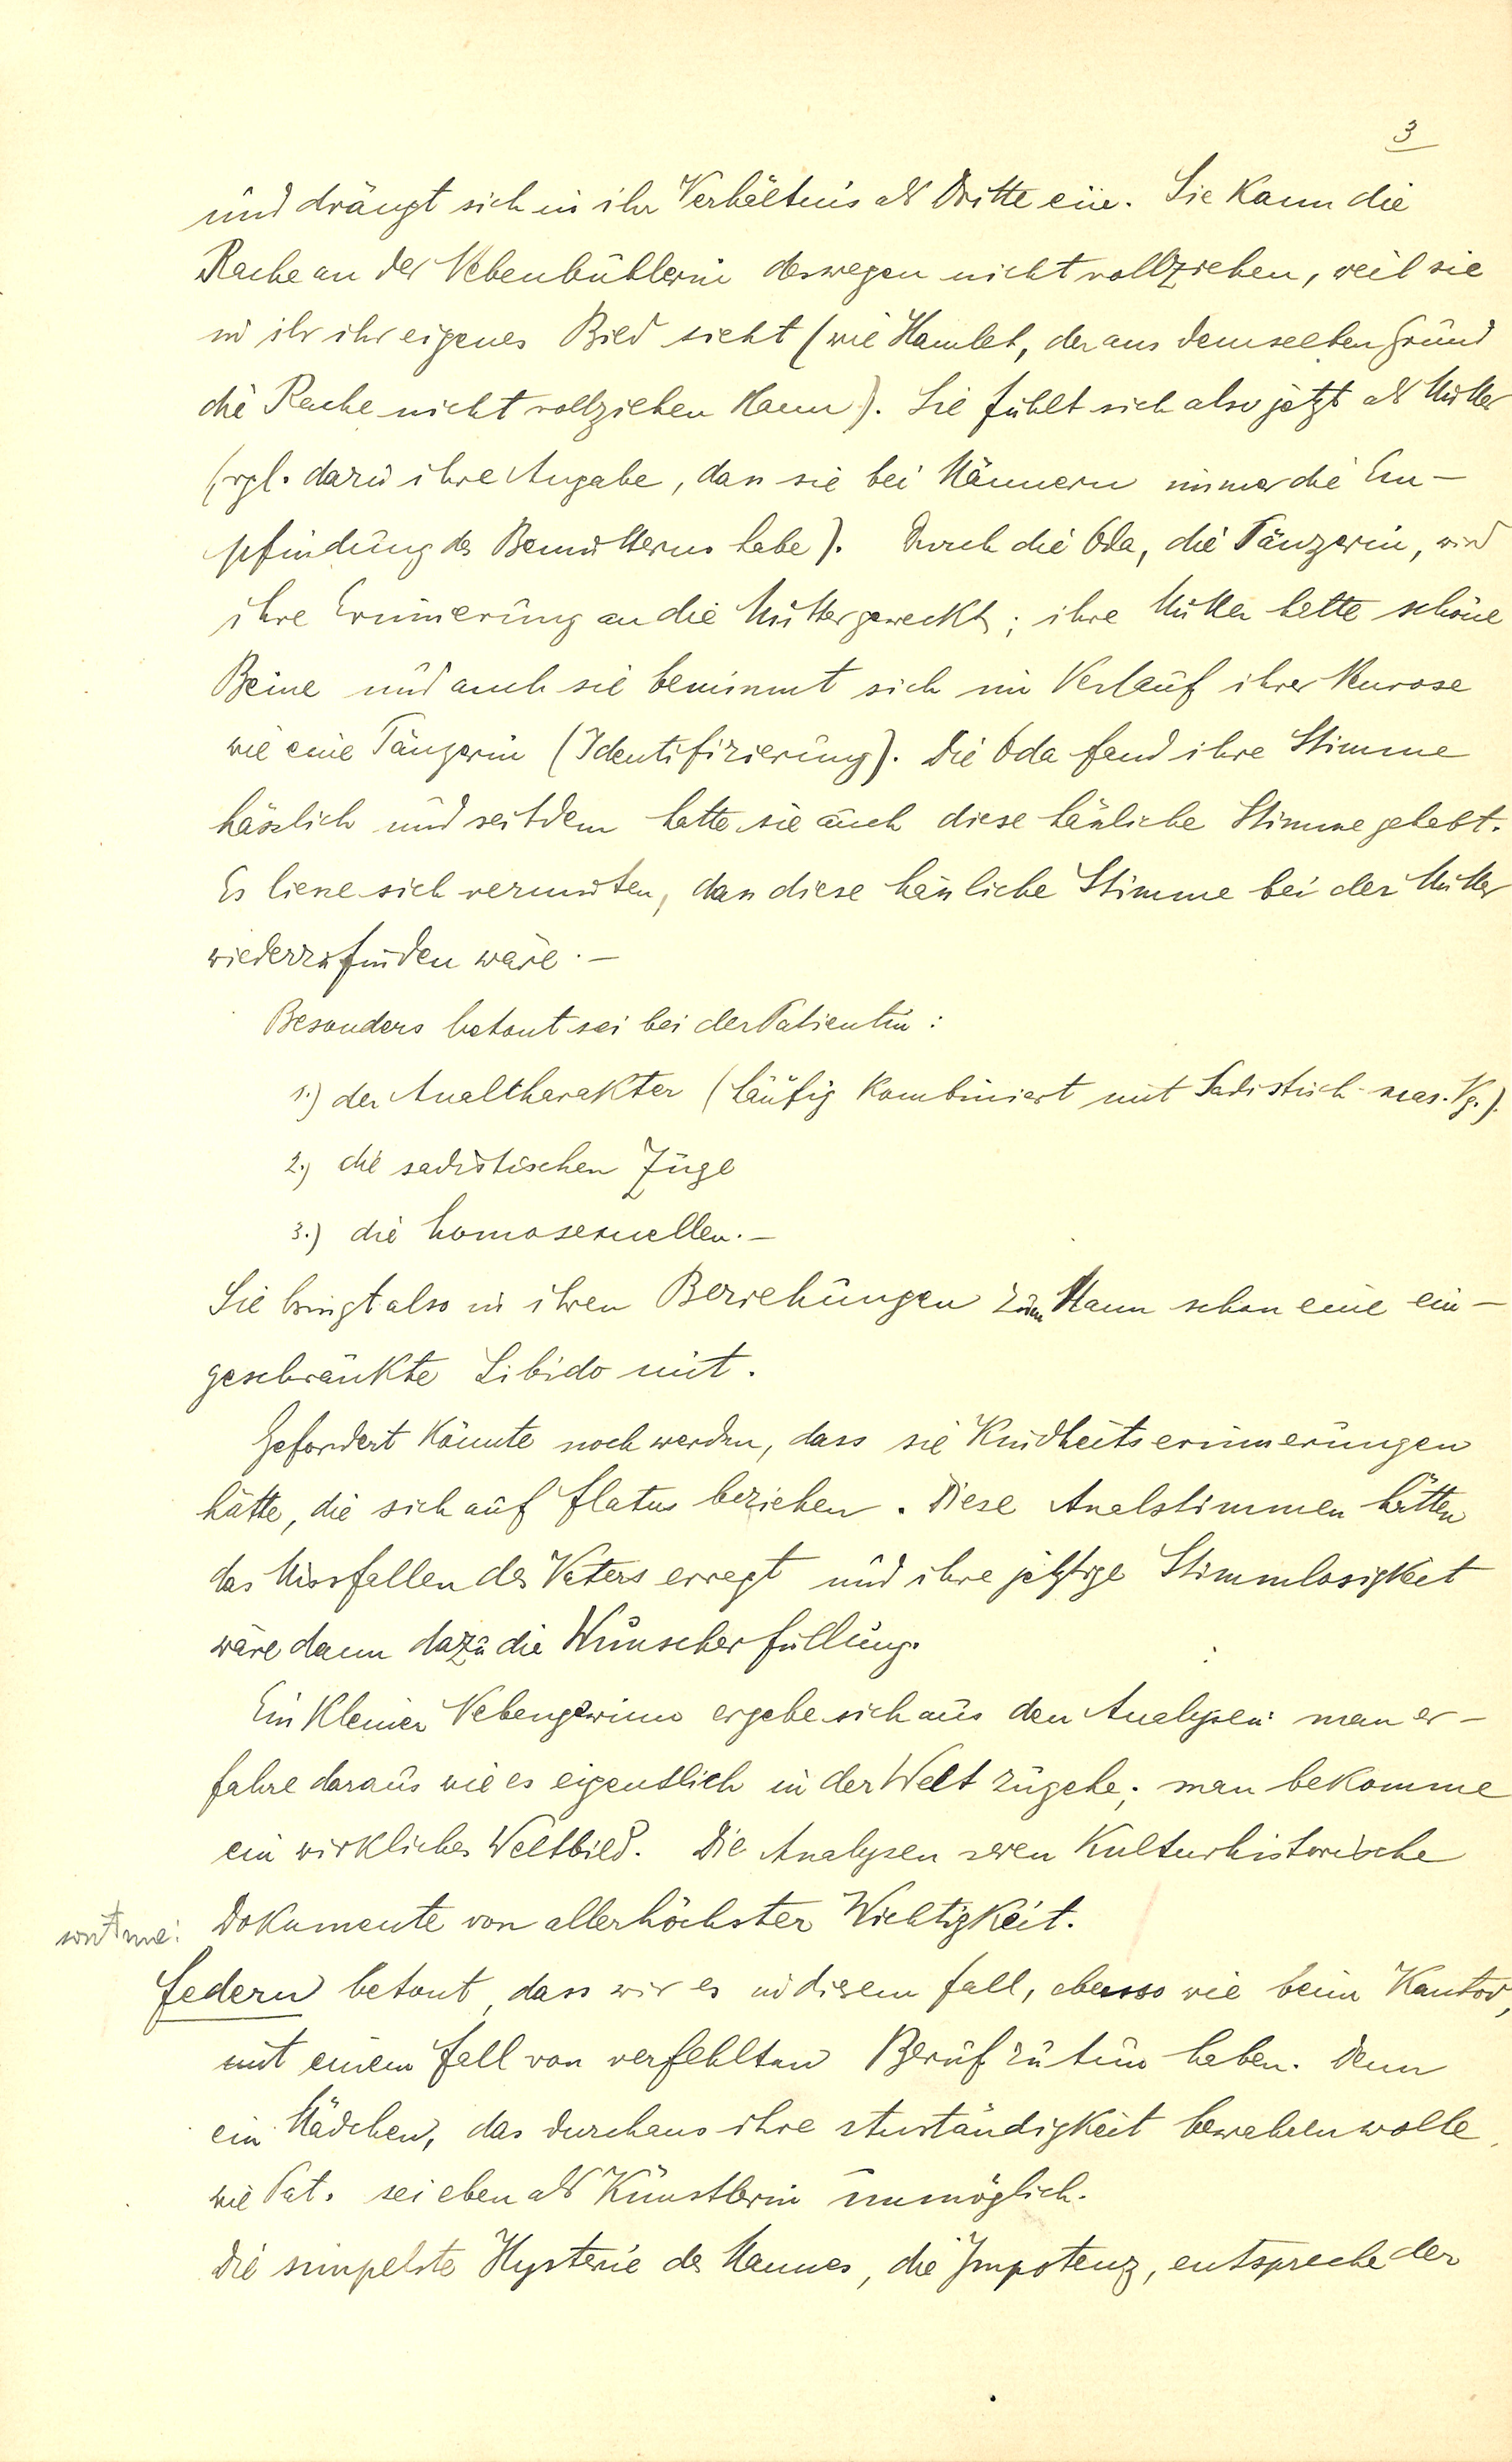 3
und drängt sich in ihr Verhältnis als Dritte ein. Sie kann die
Rache an der Nebenbuhlerin deswegen nicht vollziehen, weil sie
in ihr ihr eigenes Bild sieht (wie Hamlet, der aus demselben Grund
die Rache nicht vollziehen kann). Sie fühlt sich also jetzt als Mutter
(vgl. dazu ihre Angabe, dass sie bei Männern immer die Em-
pfindung des Bemutterns habe). Durch die Oda, die Tänzerin, wird
ihre Erinnerung an die Mutter geweckt; ihre Mutter hatte schöne
Beine und auch sie benimmt sich im Verlauf ihrer Neurose
wie eine Tänzerin (Identifizierung). Die Oda fand ihre Stimme
hässlich und seitdem hatte sie auch diese hässliche Stimme gehabt.
Es liesse sich vermuten, dass diese hässliche Stimme bei der Mutter
wiederzufinden wäre. —
Besonders betont sei bei der Patientin:
1.) der Analcharakter (häufig kombiniert mit Sadistisch-mas. Kp.).
2.) die sadistischen Züge
3.) die homosexuellen. —
Sie bringt also in ihren Beziehungen zum Mann schon eine ein-
geschränkte Libido mit.
Gefordert könnte noch werden, dass sie Kindheitserinnerungen
hätte, die sich auf flatus beziehen. Diese Analstimmen hätten
das Missfallen des Vaters erregt und ihre jetztige Stimmlosigkeit
wäre dann dazu die Wunscherfüllung.
Ein kleiner Nebengewinn ergebe sich aus den Analysen: man er-
fahre daraus wie es eigentlich in der Welt zugehe; man bekomme
ein wirkliches Weltbild. Die Analysen seien kulturhistorische
Dokumente von allerhöchster Wichtigkeit.
Federn betont, dass wir es in disem Fall, ebenso wie beim Kantor,
mit einem Fall von verfehlten Beruf zu tun haben. Denn
ein Mädchen, das durchaus ihre Anständigkeit bewahren wolle,
wie Pat. sei eben als Künstlerin unmöglich.
Die simpelste Hysterie des Mannes, die Impotenz, entspreche der